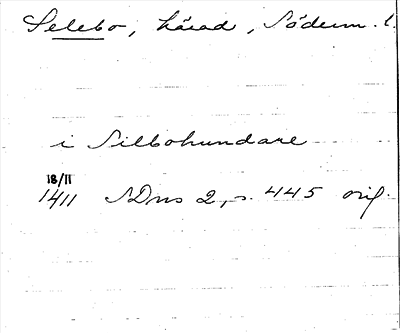 Selebo, härad, Söderm. l.
i Silbohundare
18/11
1411 SDns 2, s. 445 orig.